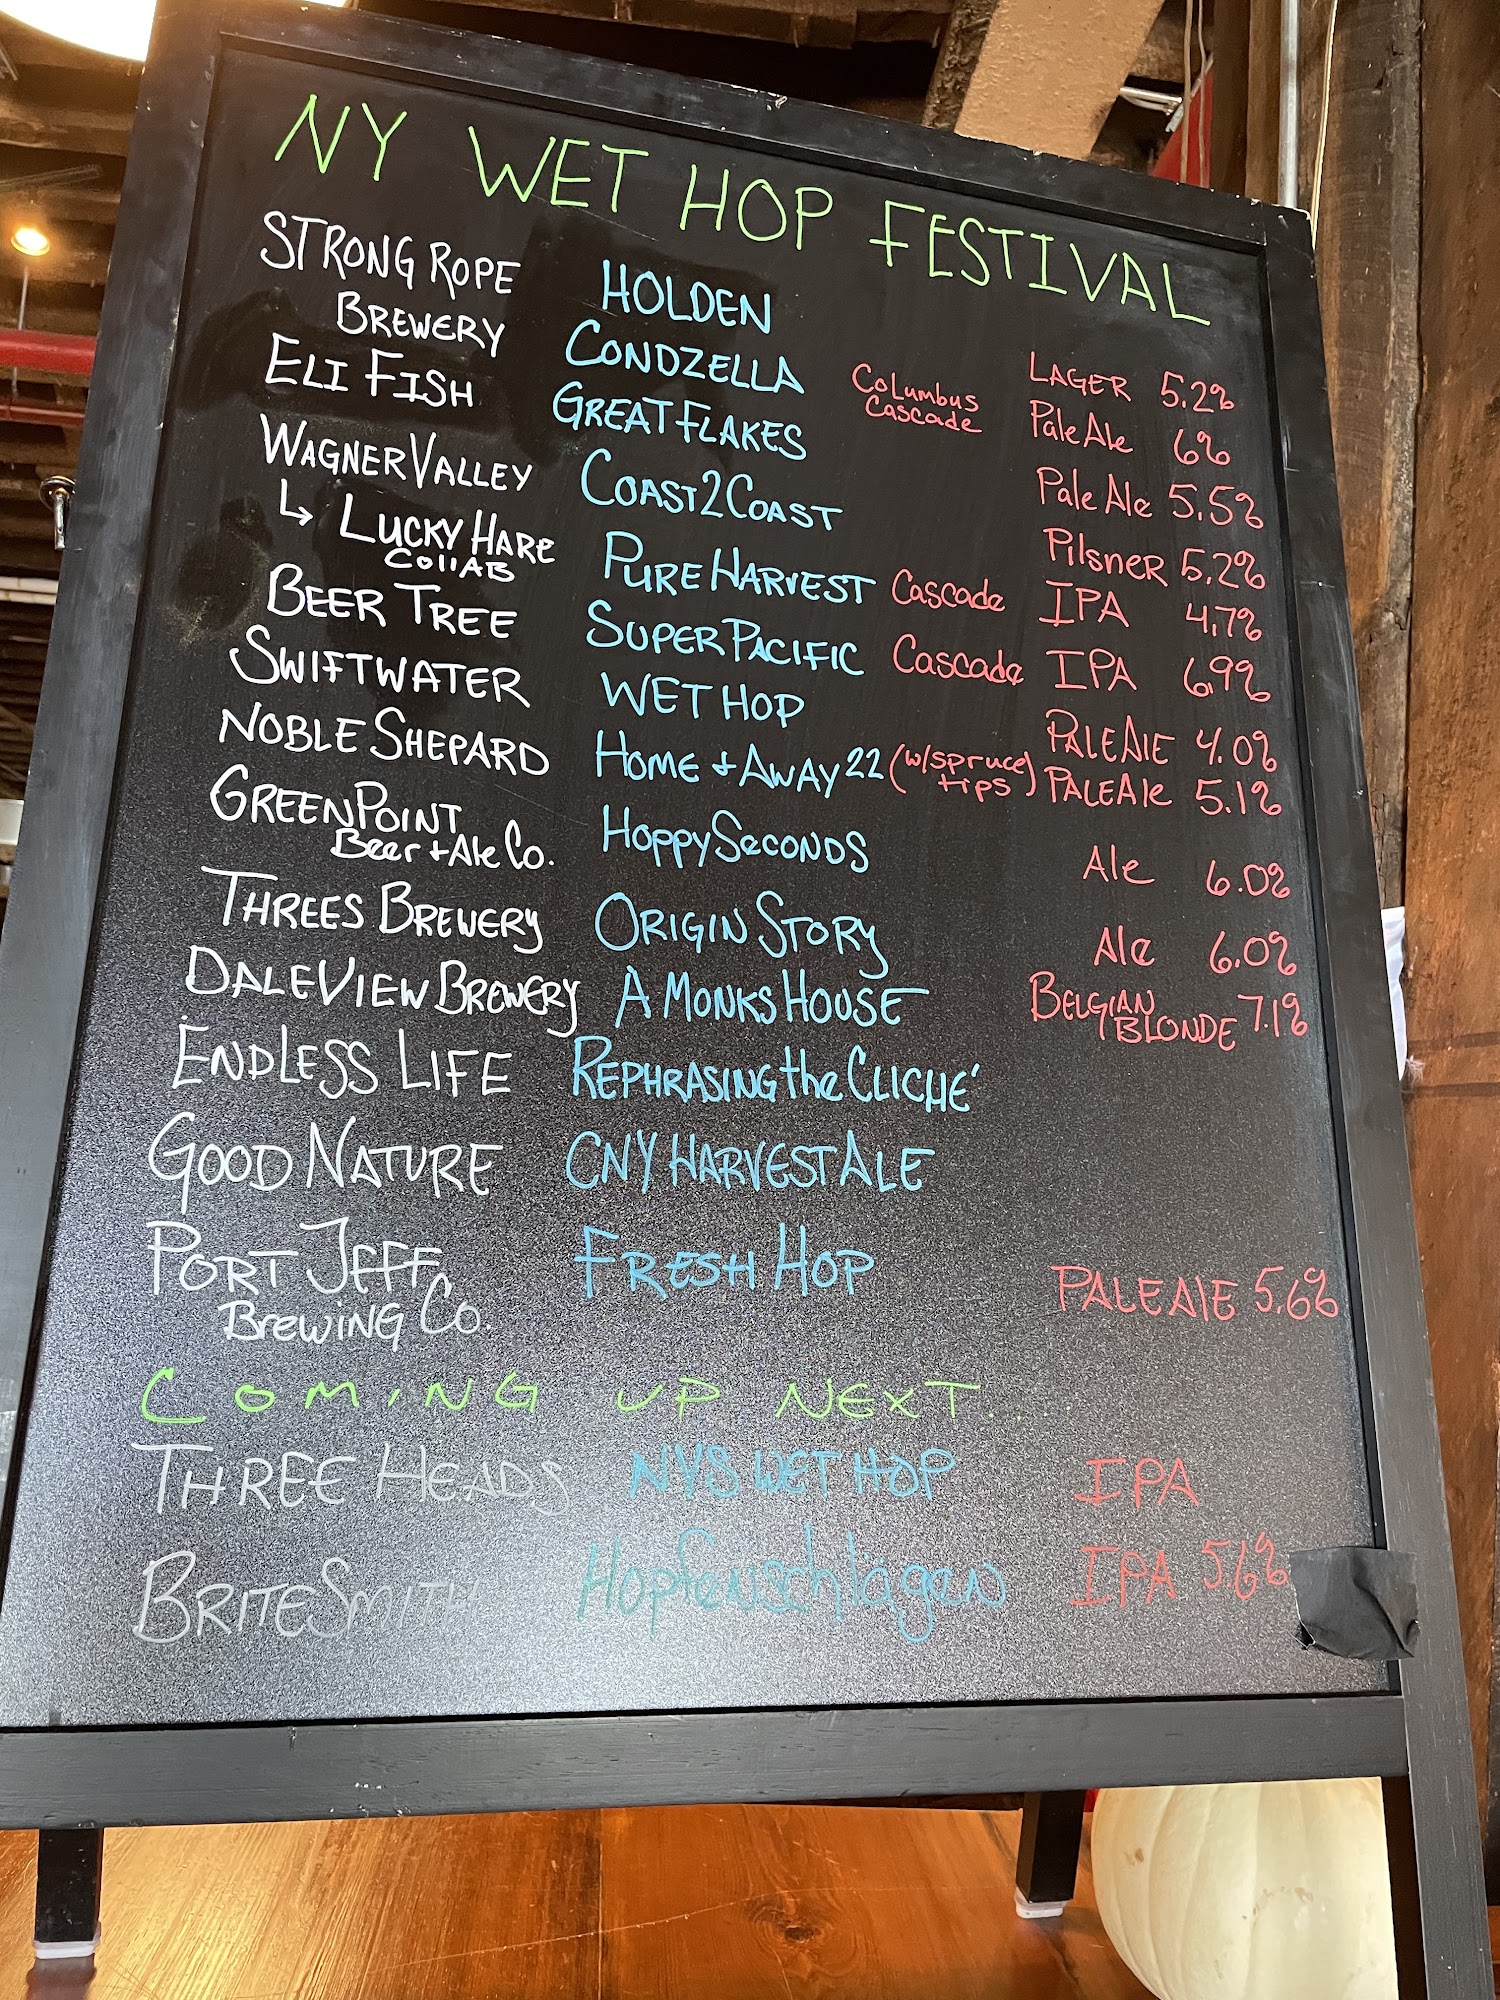 NY WET HOP FESTIVAL
STRONG ROPE HOLDEN LAGER 5.2%
BREWERY CONDZELLA Columbus Cascade Pale Ale 6%
ELI FISH GREAT FLAKES Pale Ale 5.5%
WAGNER VALLEY COAST2COAST Pilsner 5.2%
↳ LUCKY HARE COllAB PURE HARVEST Cascade IPA 4.7%
BEER TREE SUPER PACIFIC Cascade IPA 6.9%
SWIFTWATER WET HOP PALE AlE 4.0%
NOBLE SHEPARD HOME + AWAY 22 (w/spruce tips) PALE Ale 5.1%
GREENPOINT HOPPY SECONDS Ale 6.0%
Beer + Ale Co.
THREES BREWERY ORIGIN STORY Ale 6.0%
DALEVIEW BREWERY A MONKS HOUSE BELGIAN BLONDE 7.1%
ENDLESS LIFE REPHRASING the CLICHÉ
GOOD NATURE CNY HARVEST ALE
PORT JEFF FRESH HOP PALE AlE 5.6%
BREWING CO.
COMING UP NEXT....
THREE HEADS NYS WET HOP IPA
BRITESMITH Hopfenschlägen IPA 5.6%